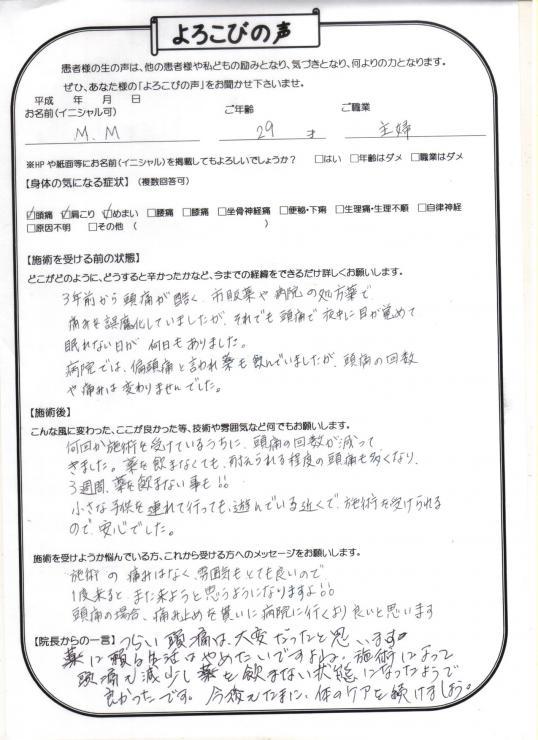 よろこびの声
患者様の生の声は、他の患者様や私どもの励みとなり、気づきとなり、何よりの力となります。
ぜひ、あなた様の「よろこびの声」をお聞かせ下さいませ。
平成　年　月　日
お名前(イニシャル可)　ご年齢　ご職業
M.M　29才　主婦
※HPや紙面等にお名前(イニシャル)を掲載してもよろしいでしょうか？　□はい　□年齢はダメ　□職業はダメ
【身体の気になる症状】(複数回答可)
☑頭痛　☑肩こり　☑めまい　□腰痛　□膝痛　□坐骨神経痛　□便秘・下痢　□生理痛・生理不順　□自律神経
□原因不明　□その他　(　)
【施術を受ける前の状態】
どこがどのように、どうすると辛かったかなど、今までの経緯をできるだけ詳しくお願いします。
3年前から頭痛が酷く、市販薬や病院の処方薬で
痛みを誤魔化していましたが、それでも頭痛で夜中に目が覚めて
眠れない日が何日もありました。
病院では、偏頭痛と言われ薬も飲んでいましたが、頭痛の回数
や痛みは変わりませんでした。
【施術後】
こんな風に変わった、ここが良かった等、技術や雰囲気など何でもお願いします。
何回か施術を受けているうちに、頭痛の回数が減って
きました。薬を飲まなくても、耐えられる程度の頭痛も多くなり、
3週間、薬を飲まない事も!!
小さな子供を連れて行っても、遊んでいる近くで、施術を受けられる
ので、安心でした。
施術を受けようか悩んでいる方、これから受ける方へのメッセージをお願いします。
施術の痛みはなく、雰囲気もとても良いので
1度来ると、また来ようと思うようになりますよ!!
頭痛の場合、痛み止めを貰いに病院に行くより良いと思います
【院長からの一言】つらい頭痛は、大変だったと思います。
薬に頼る生活はやめたいですよね。施術によって
頭痛も減少し薬を飲まない状態になったようで
良かったです。今後もたまに、体のケアを続けましょう。